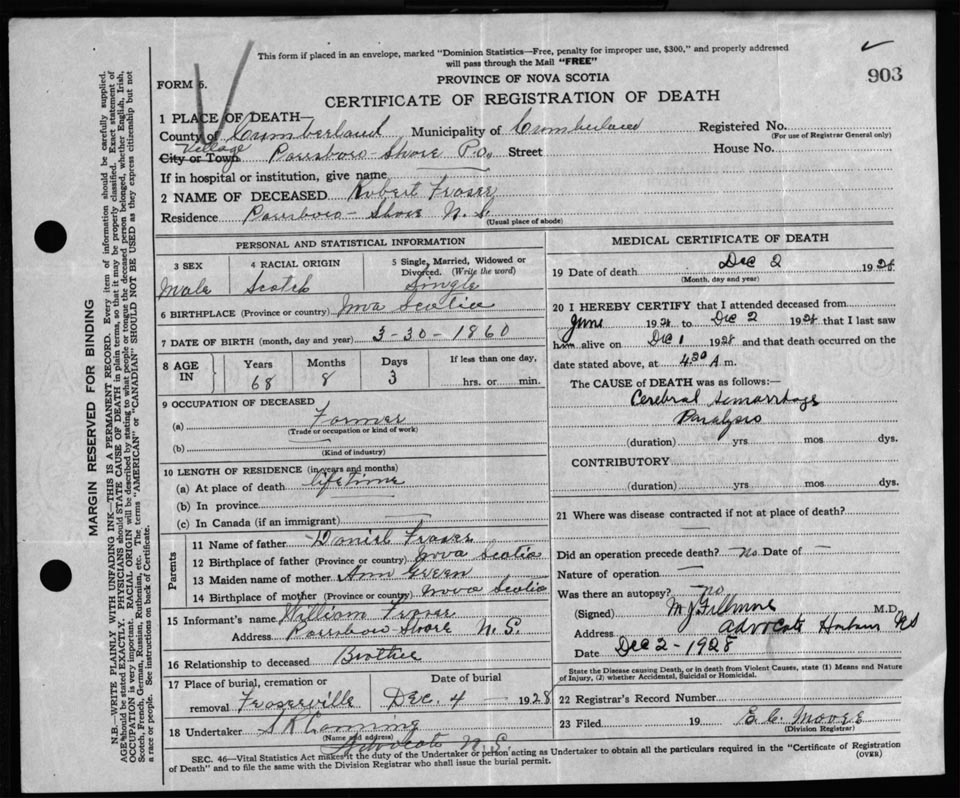 This form if placed in an envelope, marked "Dominion Statistics—Free, penalty for improper use, $300," and properly addressed
will pass through the Mail "FREE"
PROVINCE OF NOVA SCOTIA
903
FORM 6.
CERTIFICATE OF REGISTRATION OF DEATH
1 PLACE OF DEATH—
County of Cumberland Municipality of Cumberland Registered No.
(For use of Registrar General only)
Village
City or Town Parrsboro-Shore P.O. Street House No.
If in hospital or institution, give name
2 NAME OF DECEASED Robert Fraser
Residence Parrsboro-Shore N.S.
(Usual place of abode)
PERSONAL AND STATISTICAL INFORMATION
3 SEX 4 RACIAL ORIGIN 5 Single, Married, Widowed or Divorced. (Write the word)
Male Scotch Single
6 BIRTHPLACE (Province or country) Nova Scotia
7 DATE OF BIRTH (month, day and year) 3-30-1860
8 AGE IN Years Months Days If less than one day,
68 8 3 hrs. or min.
9 OCCUPATION OF DECEASED
(a) Farmer
(Trade or occupation or kind of work)
(b)
(Kind of industry)
10 LENGTH OF RESIDENCE (in years and months)
(a) At place of death lifetime
(b) In province
(c) In Canada (if an immigrant)
Parents
11 Name of father Daniel Fraser
12 Birthplace of father (Province or country) Nova Scotia
13 Maiden name of mother Ann Green
14 Birthplace of mother (Province or country) Nova Scotia
15 Informant's name William Fraser
Address Parrsboro Shore N.S.
16 Relationship to deceased Brother
17 Place of burial, cremation or Date of burial
removal Fraserville Dec. 4 1928
18 Undertaker S R Canning
(Name and address)
Advocate N.S.
MEDICAL CERTIFICATE OF DEATH
19 Date of death Dec 2 1928
(Month, day and year)
20 I HEREBY CERTIFY that I attended deceased from
June 1928 to Dec 2 1928 that I last saw
him alive on Dec 1 1928 and that death occurred on the
date stated above, at 4.30 A.m.
The CAUSE of DEATH was as follows:—
Cerebral Hemorrhage
Paralysis
(duration) yrs mos dys.
CONTRIBUTORY
(duration) yrs. mos. dys.
21 Where was disease contracted if not at place of death?
Did an operation precede death? No. Date of —
Nature of operation —
Was there an autopsy? no
(Signed) M.D.
Address Advocate Harbour NS
Date Dec 2 - 1928
State the Disease causing Death, or in death from Violent Causes, state (1) Means and Nature
of Injury, (2) whether Accidental, Suicidal or Homicidal.
22 Registrar's Record Number
23 Filed 19 E. C. Moore
(Division Registrar)
SEC. 46—Vital Statistics Act makes it the duty of the Undertaker or person acting as Undertaker to obtain all the particulars required in the "Certificate of Registration
of Death" and to file the same with the Division Registrar who shall issue the burial permit.
(OVER)
MARGIN RESERVED FOR BINDING
N.B.—WRITE PLAINLY WITH UNFADING INK—THIS IS A PERMANENT RECORD. Every item of information should be carefully supplied.
AGE should be stated EXACTLY. PHYSICIANS should STATE CAUSE OF DEATH in plain terms, so that it may be properly classified. Exact statement of
OCCUPATION is very important. RACIAL ORIGIN will be described by stating to what people or tongue the deceased person belonged, whether English, Irish,
Scotch, French, German, Russian, Ruthenian, etc. The terms "AMERICAN" or "CANADIAN" SHOULD NOT BE USED as they express citizenship but not
a race or people. See instructions on back of Certificate.